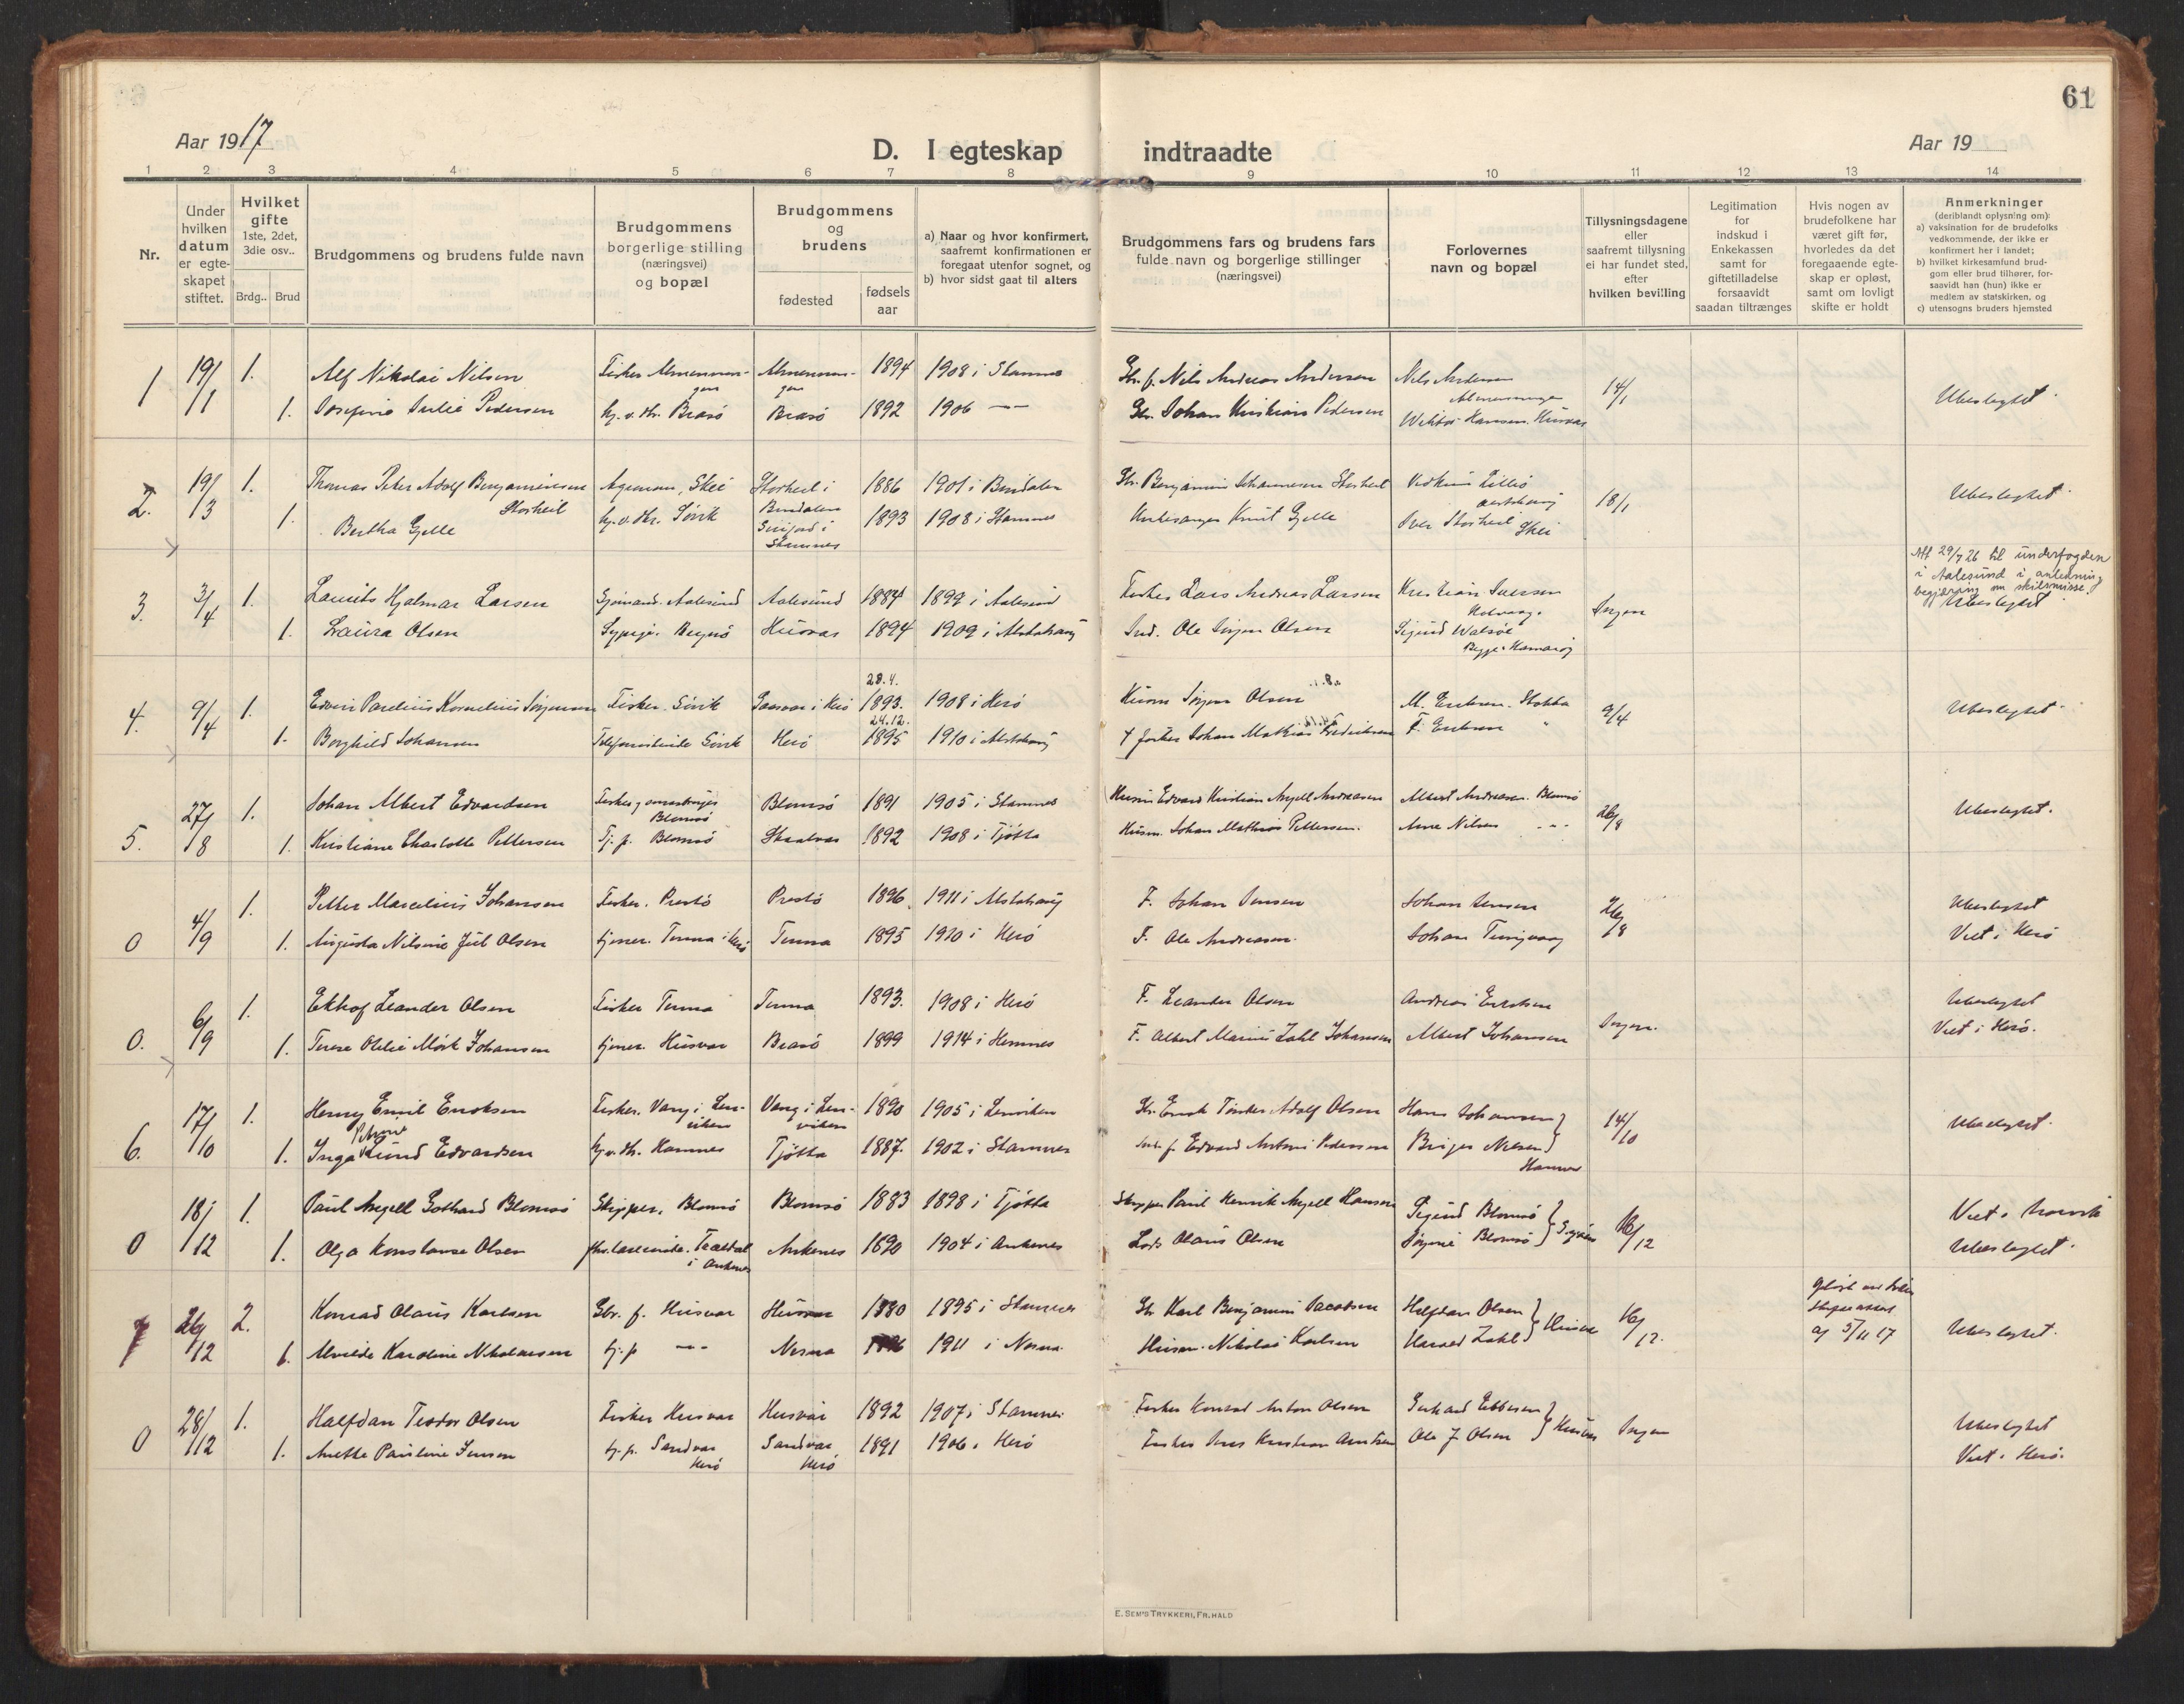 61
Aar 1917
D. I egteskap indtraadte
Aar 19
1 2 3 4 5 6 7 8 9 10 11 12 13 14
Nr.
Under hvilken datum er egteskapet stiftet.
Hvilket gifte 1ste, 2det, 3die osv..
Brdg.. Brud
Brudgommens og brudens fulde navn
Brudgommens borgerlige stilling (næringsvei) og bopæl
Brudgommens og brudens
fødested
fødsels aar
a) Naar og hvor konfirmert, saafremt konfirmationen er foregaat utenfor sognet, og
b) hvor sidst gaat til alters
Brudgommens fars og brudens fars fulde navn og borgerlige stillinger (næringsvei)
Forlovernes navn og bopæl
Tillysningsdagene eller saafremt tillysning ei har fundet sted, efter hvilken bevilling
Legitimation for indskud i Enkekassen samt for giftetilladelse forsaavidt saadan tiltrænges
Hvis nogen av brudefolkene har været gift før, hvorledes da det foregaaende egteskap er opløst, samt om lovligt skifte er holdt
Anmerkninger
(deriblandt oplysning om)
a) vaksination for de brudefolks vedkommende, der ikke er konfirmert her i landet;
b) hvilket kirkesamfund brudgom eller brud tilhører, forsaavidt han (hun) ikke er medlem av statskirken, og
c) utensogns bruders hjemsted
1 19/1 1. Alf Nikolai Nilsen Fisker Almenningen Almenningen 1894 1908 i Stamnes Gbr. f. Nils Andreas Andersen Nils Andersen Almenningen 14/1 Ubeslegtet.
1. Josefine Julie Pedersen Brasö Brasö 1892 1906 — Gbr. Johan Kristian Pedersen Wiktor Hansen Husvær
2. 19/3 1. Thomas Peter Adolf Benjaminsen Storheil Agronom, Skei Storheil i Bindalen 1886 1901 i Bindalen Gbr. Benjamin Johannesen Storheil 18/1 Ubeslegtet.
1. Bertha Gjelle Sörvik Stamnes 1893 1908 i Stamnes Kirkesanger Knut Gjelle Iver Storheil Skei
3. 3/4 1. Laurits Hjalmar Larsen Sjömand. Aalesund Aalesund 1884 1899 i Aalesund Fisker Lars Andreas Larsen Kristian Iversen Ingen Att 29/7 26 til underfogden i Aalesund i anledning begjæring om skilsmisse.
Ubeslegtet
1. Laura Olsen Husvær 1894 1909 i Alstahaug Ind. Ole Jörgen Olsen Sigurd
4. 9/4 1. Edvin Pareliius Kornelius Jörgensen Fisker. Sörvik i Herö 28.4. 1893. 1908 i Herö Jörgen Olsen M. Eriksen. Stokka 9/4 Ubeslegtet.
1. Borghild Johansen Telefonistinde Sörvik Herö 24.12. 1895 1910 i Alstahaug † fisker Johan Mathias Fredriksen F. Eriksen "
5. 27/8 1. Johan Albert Edvardsen Blomsö Blomsö 1891 1905 i Stamnes Husm Edvard Kristian Angell Andreassen Albert Andreasen. Blomsö 26/8 Ubeslegtet.
1. Kristiane Charlotte Pettersen Tj. p. Blomsö Skaalvær 1892 1908 i Tjötta Husm. Johan Mathias Pettersen. Arne Nilsen -"-
0 4/9 1. Petter Marcelius Johansen Fisker. Prestö Prestö 1896 1911 i Alstahaug F. Johan Jensen Johan Jensen 26/8 Ubeslegtet
1. Augusta Nilsine Juel Olsen tjener. Tenna i Herö Tenna 1895 1910 i Herö F. Ole Andreasen. Johan Viet i Herö
0. 6/9 1. Ekhof Leander Olsen Fisker Tenna Tenna 1893. 1908 i Herö F. Leander Olsen Andreas Eriksen Ingen. Ubeslegtet
1. Terese Otelie Mörk Johansen tjener. Husvær Brasö 1899 1914 i Hemnes F. Albert Marius Zahl Johansen Albert Johansen Viet i Herö.
6. 17/10 1. Henry Emil Enoksen Fisker. Vang i Lenviken Vang i Lenviken 1890 1905 i Lenviken Gbr. Enok Tönder Adolf Olsen Hans Johansen 14/10 Ubeslegtet.
1. Inga Petrine Lund Edvardsen Hamnes Tjötta 1887. 1902 i Stamnes Edvard Antoni Pedersen Birger Nilsen Hamnes
0 18/12 1. Paul Angell Gothard Blomsö Skipper. Blomsö Blomsö 1883 1898 i Tjötta Skipper Paul Henrik Angell Hansen Sigurd Blomsö 16/12 Viet i Narvik
1. Olga Konstanse Olsen Trældal i Ankenes Ankenes 1890 1904 i Ankenes Lods Olaus Olsen Jörgine Blomsö Ubeslegtet.
7 26/12 2. Konrad Olaus Karlsen Gbr. f. Husvær Husvær 1880 1895 i Stamnes Gbr Karl Benjamin Jacobsen Halfdan Olsen Husvær 16/12. 5/11 17 Ubeslegtet.
1. Alvilde Karoline Nikolaisen tj. p. -"- Nesna 1911 i Nesna. Husm. Nikolai Karlsen Harald Zahl
0 28/12 1. Halfdan Teodor Olsen Fisker Husvær Husvær 1892 1907 i Stamnes Fisker Konrad Anton Olsen Gerhard Ebbesen Husvær Ingen Ubeslegtet
1. Anette Pauline Jensen tj. p. Sandvær Herö Sandvær Herö 1891 1906 i Herö Fisker Jens Kristian Arntsen Ole J. Olsen Viet i Herö.
E. SEM'S TRYKKERI, FR.HALD